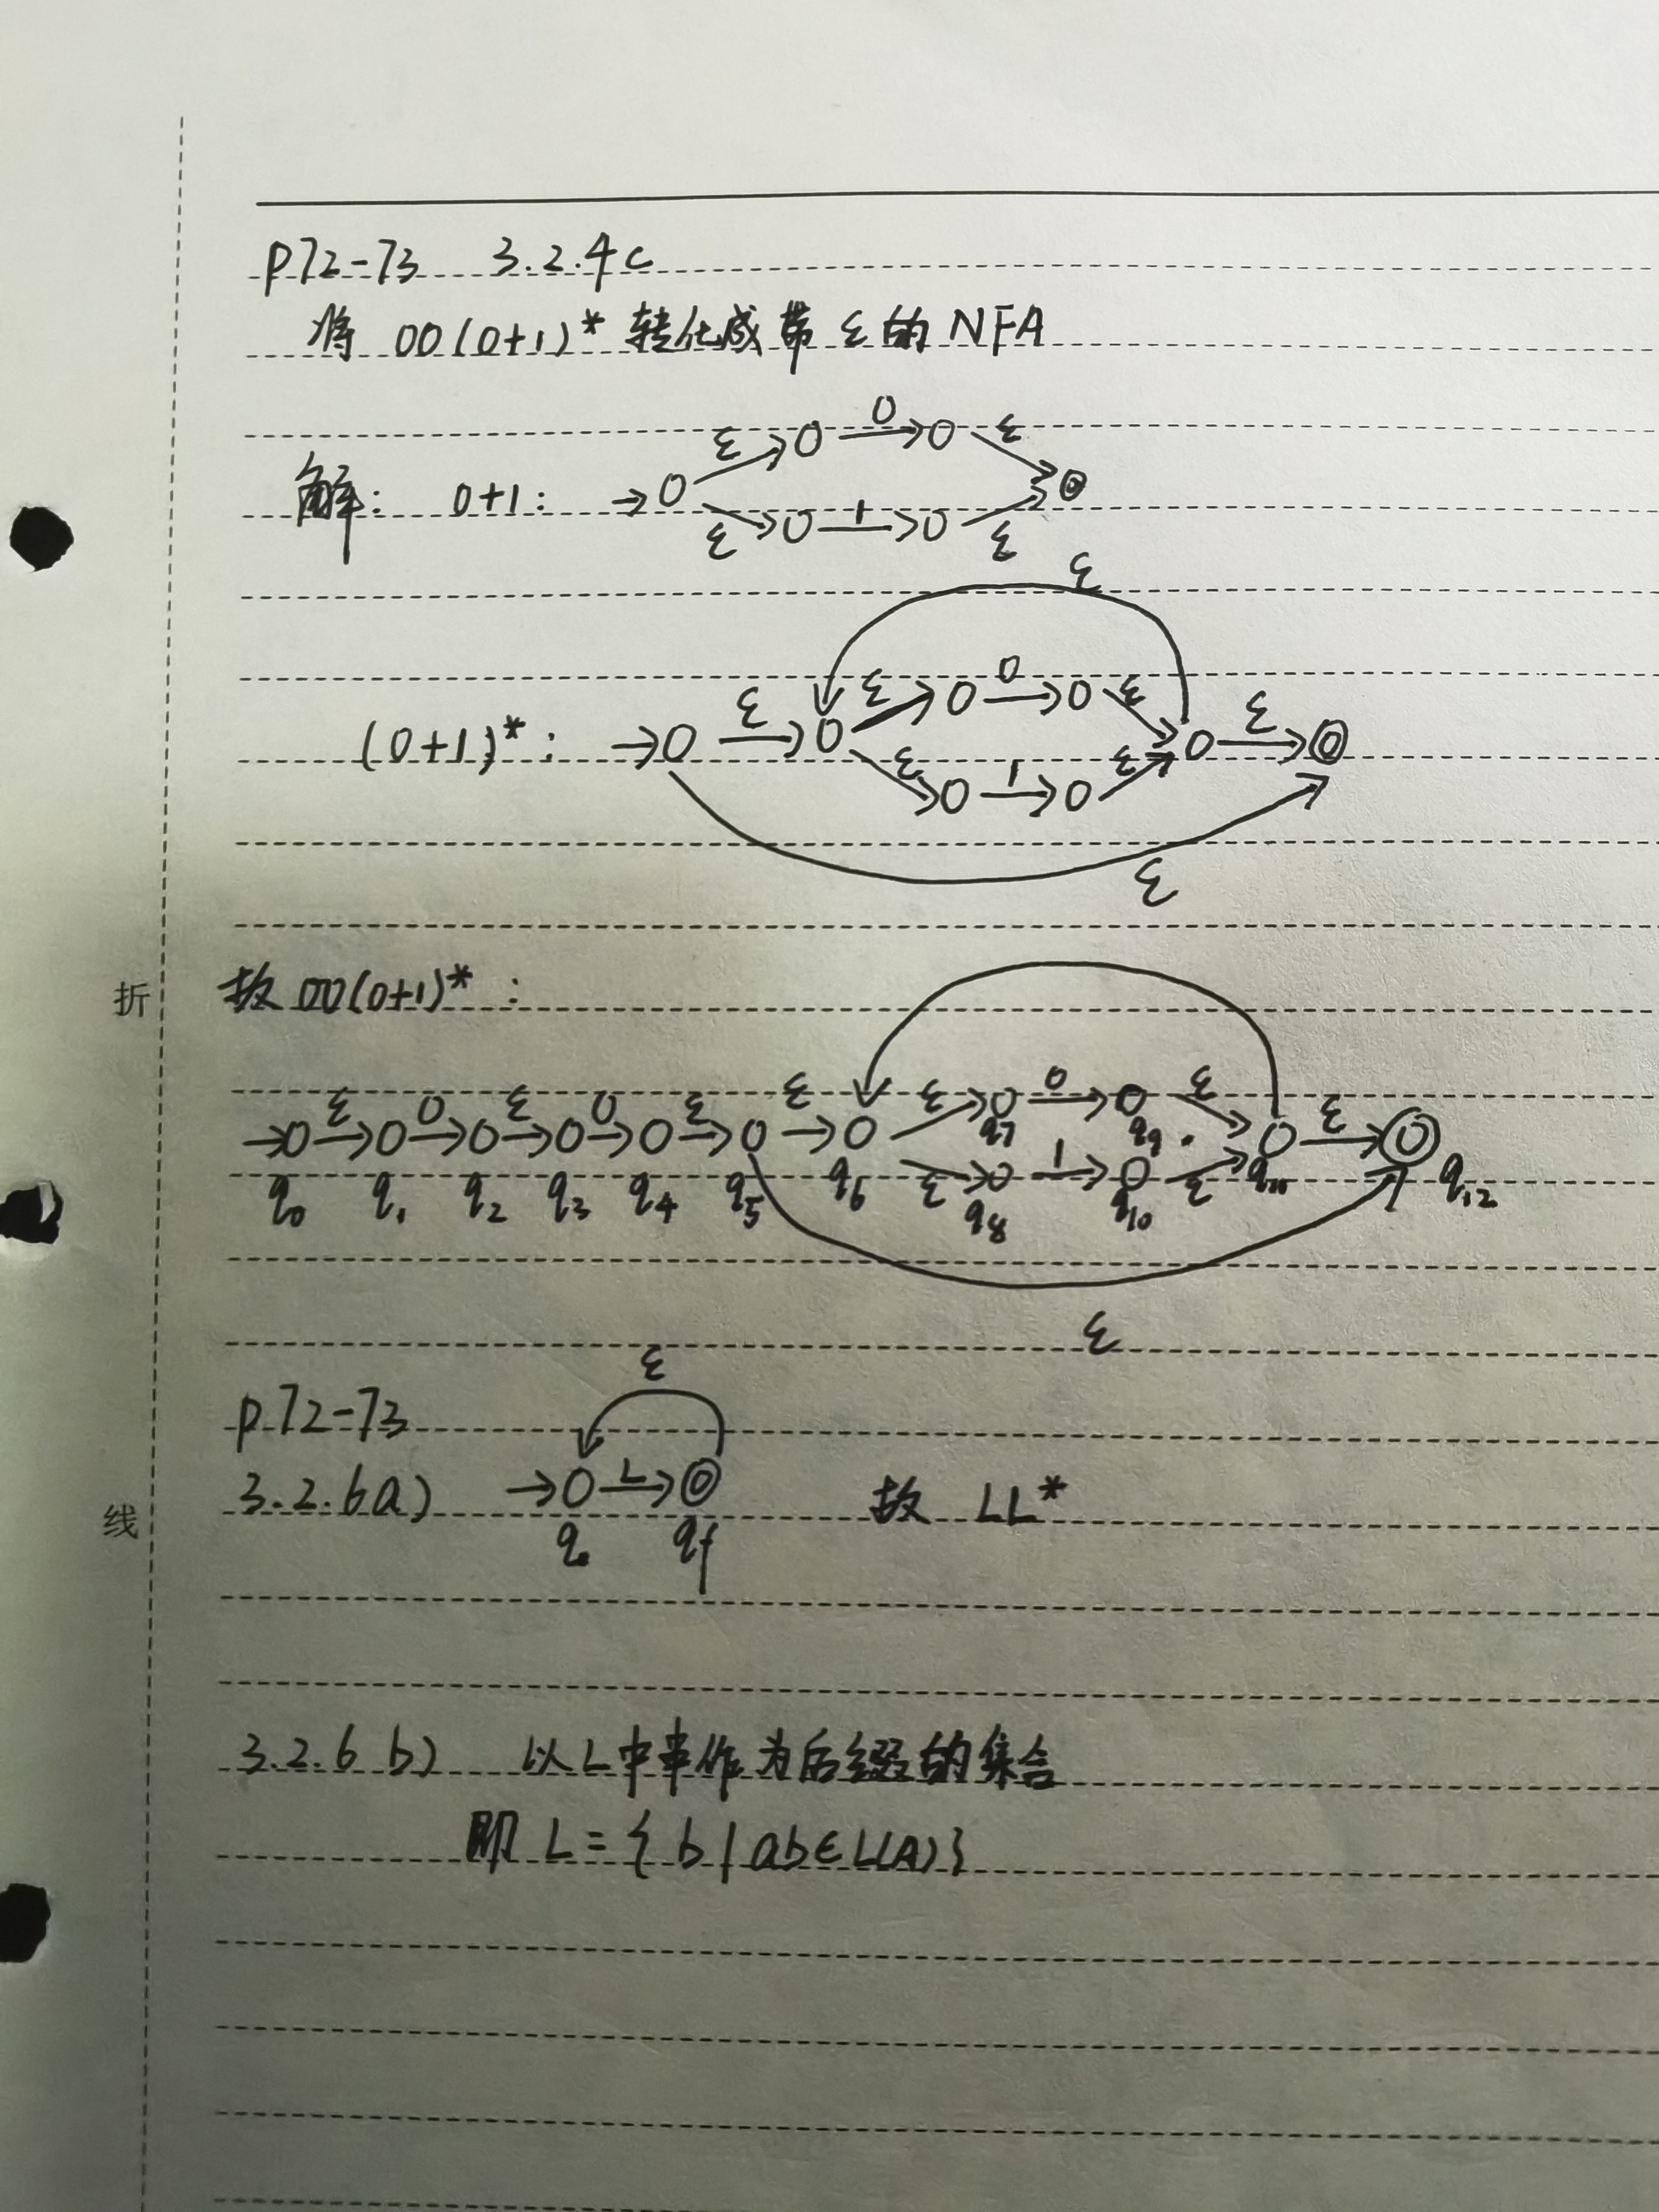 P72-73 3.2.4c
将 00(0+1)* 转化成带 ε 的 NFA
ε 0 ε
解: 0+1:
ε 1 ε
ε
ε ε 0 ε ε
(0+1)*:
ε 1 ε
ε
折 故 00(0+1)* :
ε 0 ε 0 ε ε ε 0 ε ε
q7 q9
ε 1 ε
q0 q1 q2 q3 q4 q5 q6 q8 q10 q11 q12
ε
ε
P72-73
线 3.2.6a) L 故 LL*
q0 qf
3.2.6 b) 以L中串作为后缀的集合
即 L = { b | ab∈L(A)}